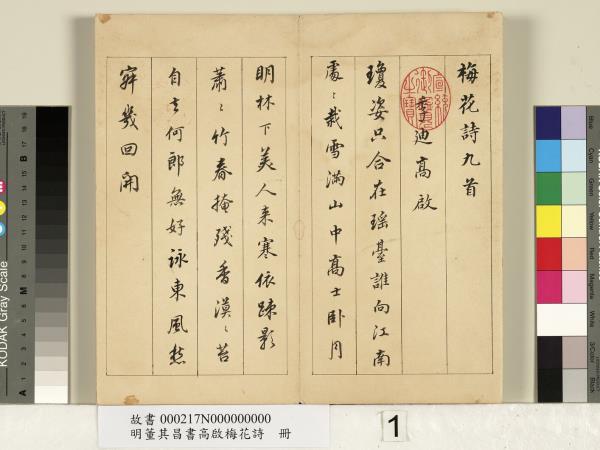 梅花詩九首
季迪高啟
瓊姿只合在瑤臺誰向江南
處〻栽雪滿山中高士卧月
明林下美人来寒依疎影
蕭〻竹春掩殘香漠〻苔
自去何郎無好詠東風愁
寂幾回開
故書 000217N000000000
明董其昌書高啟梅花詩 冊
1
KODAK Gray Scale
A 1 2 3 4 5 6 M 8 9 10 11 12 13 14 15 B 17 18 19
Blue
Cyan
Green
Yellow
Red
Magenta
White
3/Color
Black